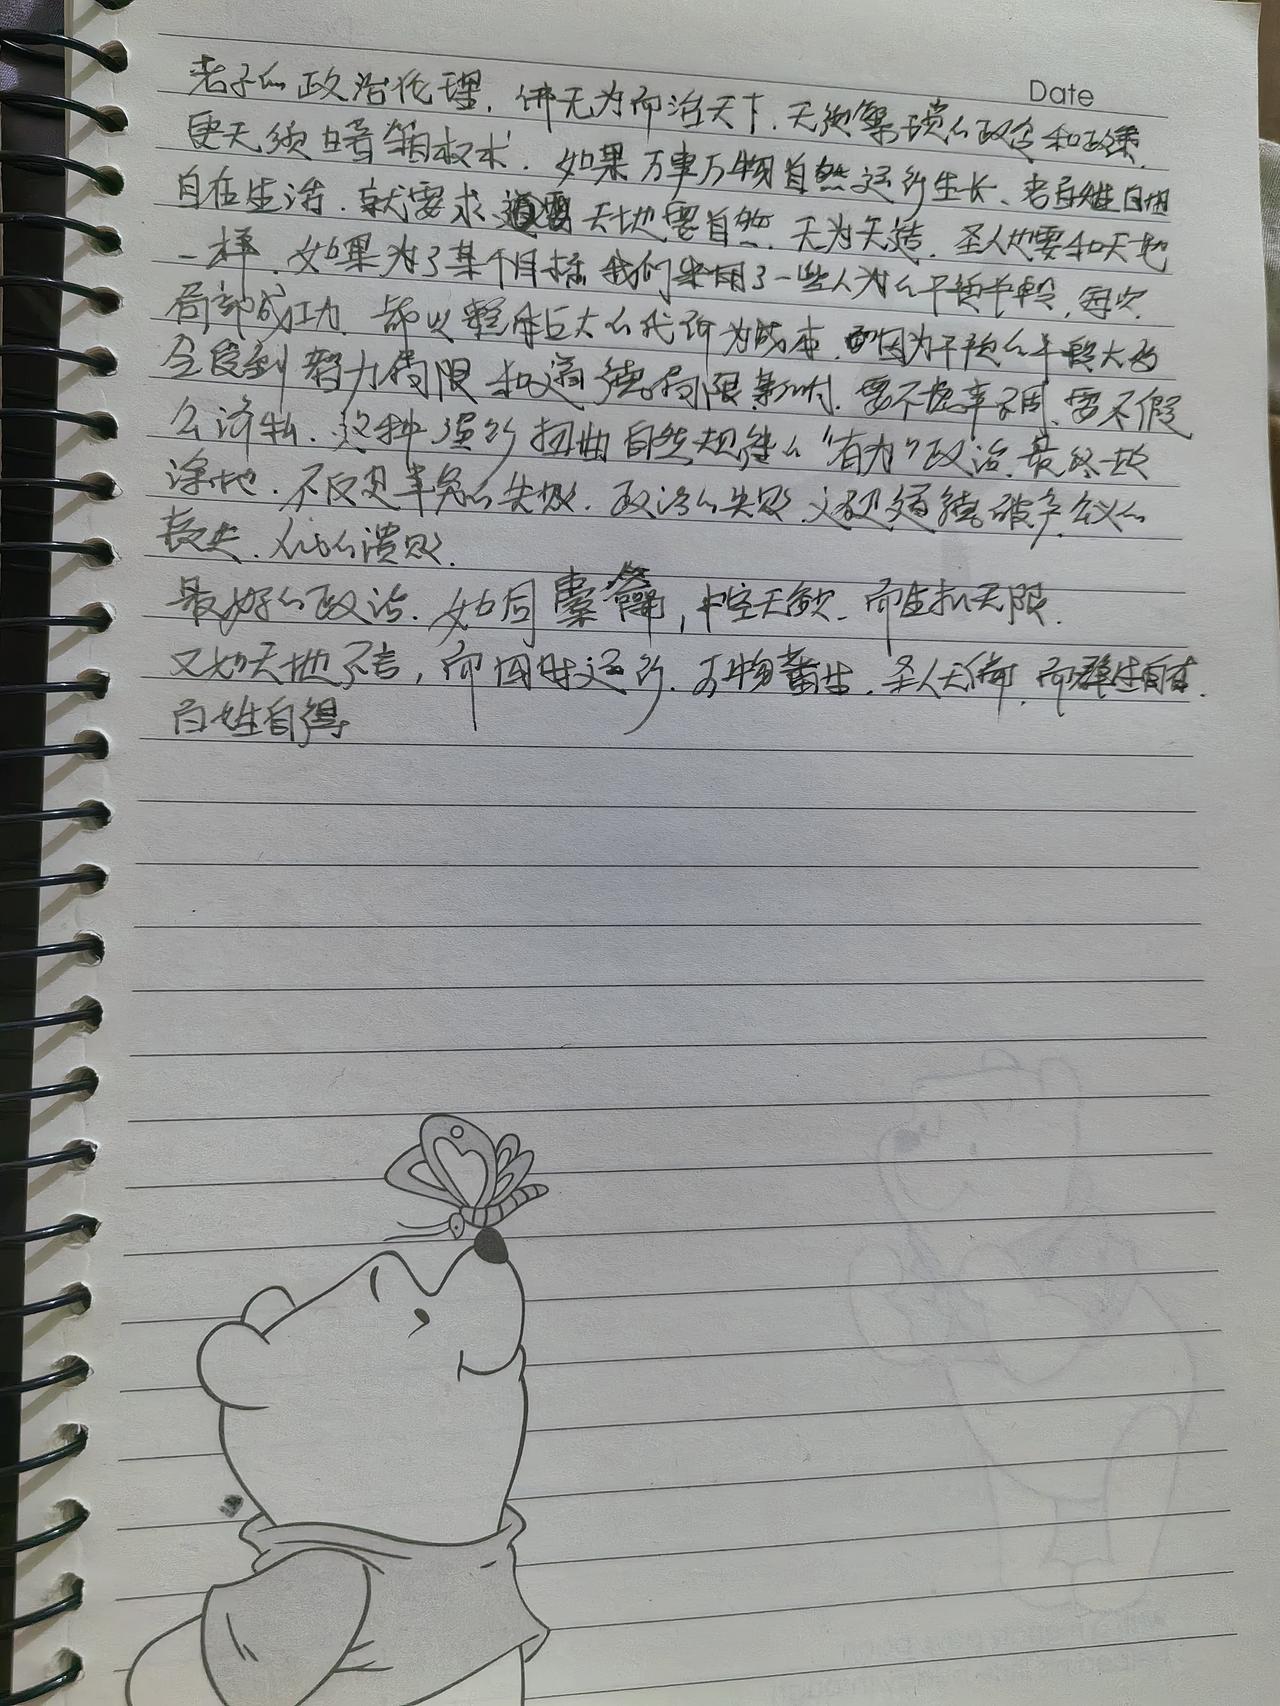 Date
老子的政治伦理，讲无为而治天下，无须繁琐的政令和政策，
更无须暗箱权术，如果万事万物自然运行生长、老百姓自由
自在生活，就要求道要天地要自然，无为无造，圣人也要和天地
一样，如果为了某个目标我们采用了一些人为的干预手段，每次
局部成功，都以整体巨大的代价为成本，因为干预的手段大多
会受到智力局限和道德局限影响，要不是率不周，要不假
公济私，这种强行扭曲自然规律的“有为”政治，最终一败
涂地，不仅是事实的失败，政治的失败，还是道德破产公义的
丧失，人心的溃败。
最好的政治，如同橐籥，中空无欲，而生机无限。
又如天地不言，而四时运行，万物蕃生，圣人无 而群生自
百姓自得